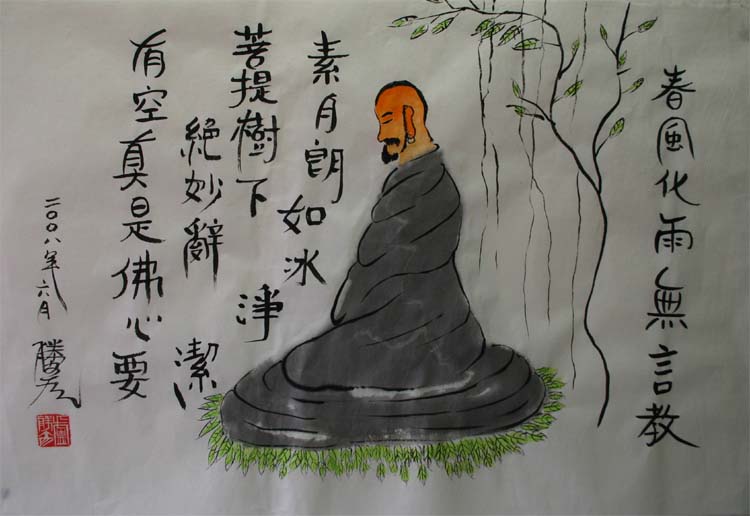 春風化雨無言教
素月朗如冰淨潔
菩提樹下
絕妙辭
有空真是佛心要
二〇〇八年六月
勝彥